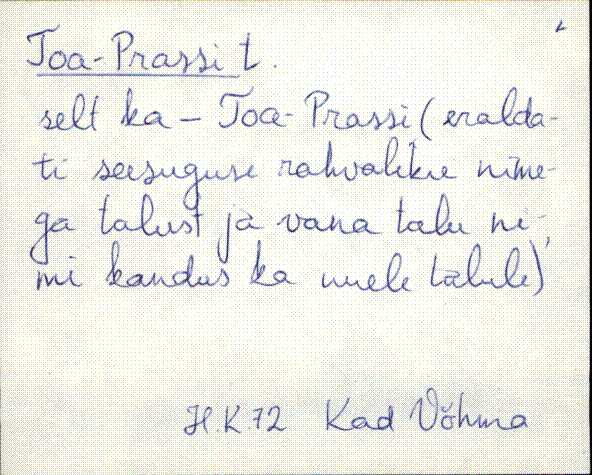 Toa-Prassi t.
selt ka – Toa-Prassi (eralda-
ti seesuguse rahvaliku nime-
ga talust ja vana talu ni-
mi kandus ka uuele talule)
H.K.72 Kad Võhma